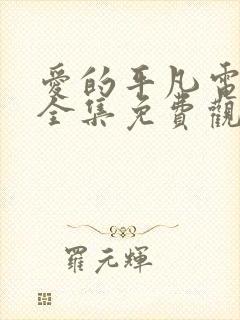 愛的平凡電
全集免費觀
羅元輝